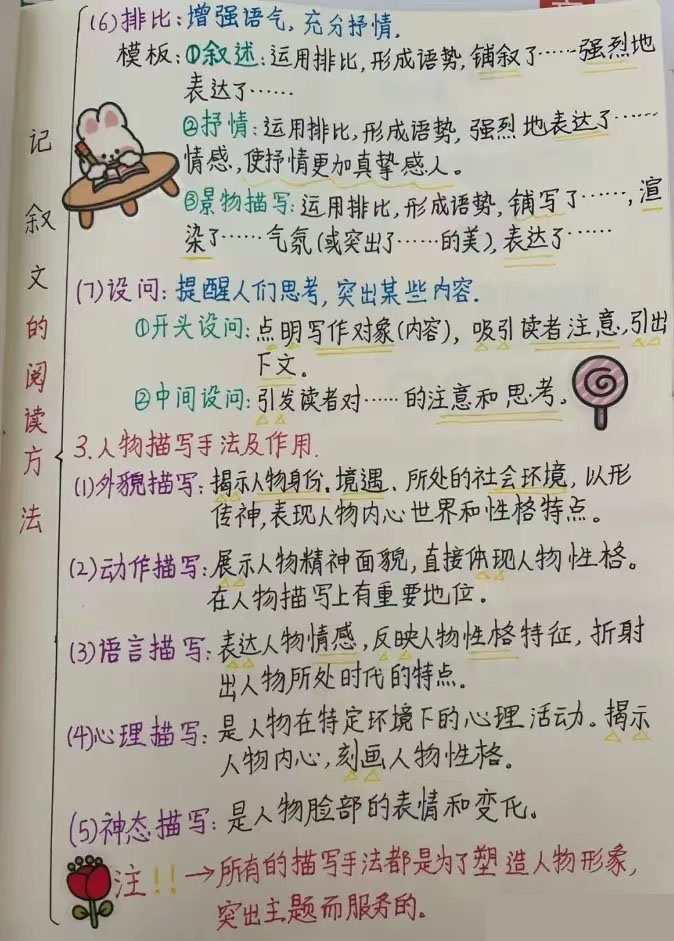 (6)排比:增强语气,充分抒情.
模板:①叙述:运用排比,形成语势,铺叙了……强烈地
表达了……
②抒情:运用排比,形成语势,强烈地表达了……
情感,使抒情更加真挚感人。
③景物描写:运用排比,形成语势,铺写了……,渲
染了……气氛(或突出了……的美),表达了……
(7)设问:提醒人们思考,突出某些内容.
①开头设问:点明写作对象(内容),吸引读者注意,引出
下文。
②中间设问:引发读者对……的注意和思考。
记叙文的阅读方法
3.人物描写手法及作用.
(1)外貌描写:揭示人物身份、境遇、所处的社会环境,以形
传神,表现人物内心世界和性格特点。
(2)动作描写:展示人物精神面貌,直接体现人物性格。
在人物描写上有重要地位。
(3)语言描写:表达人物情感,反映人物性格特征,折射
出人物所处时代的特点。
(4)心理描写:是人物在特定环境下的心理活动。揭示
人物内心,刻画人物性格。
(5)神态描写:是人物脸部的表情和变化。
注!!→所有的描写手法都是为了塑造人物形象,
突出主题而服务的。